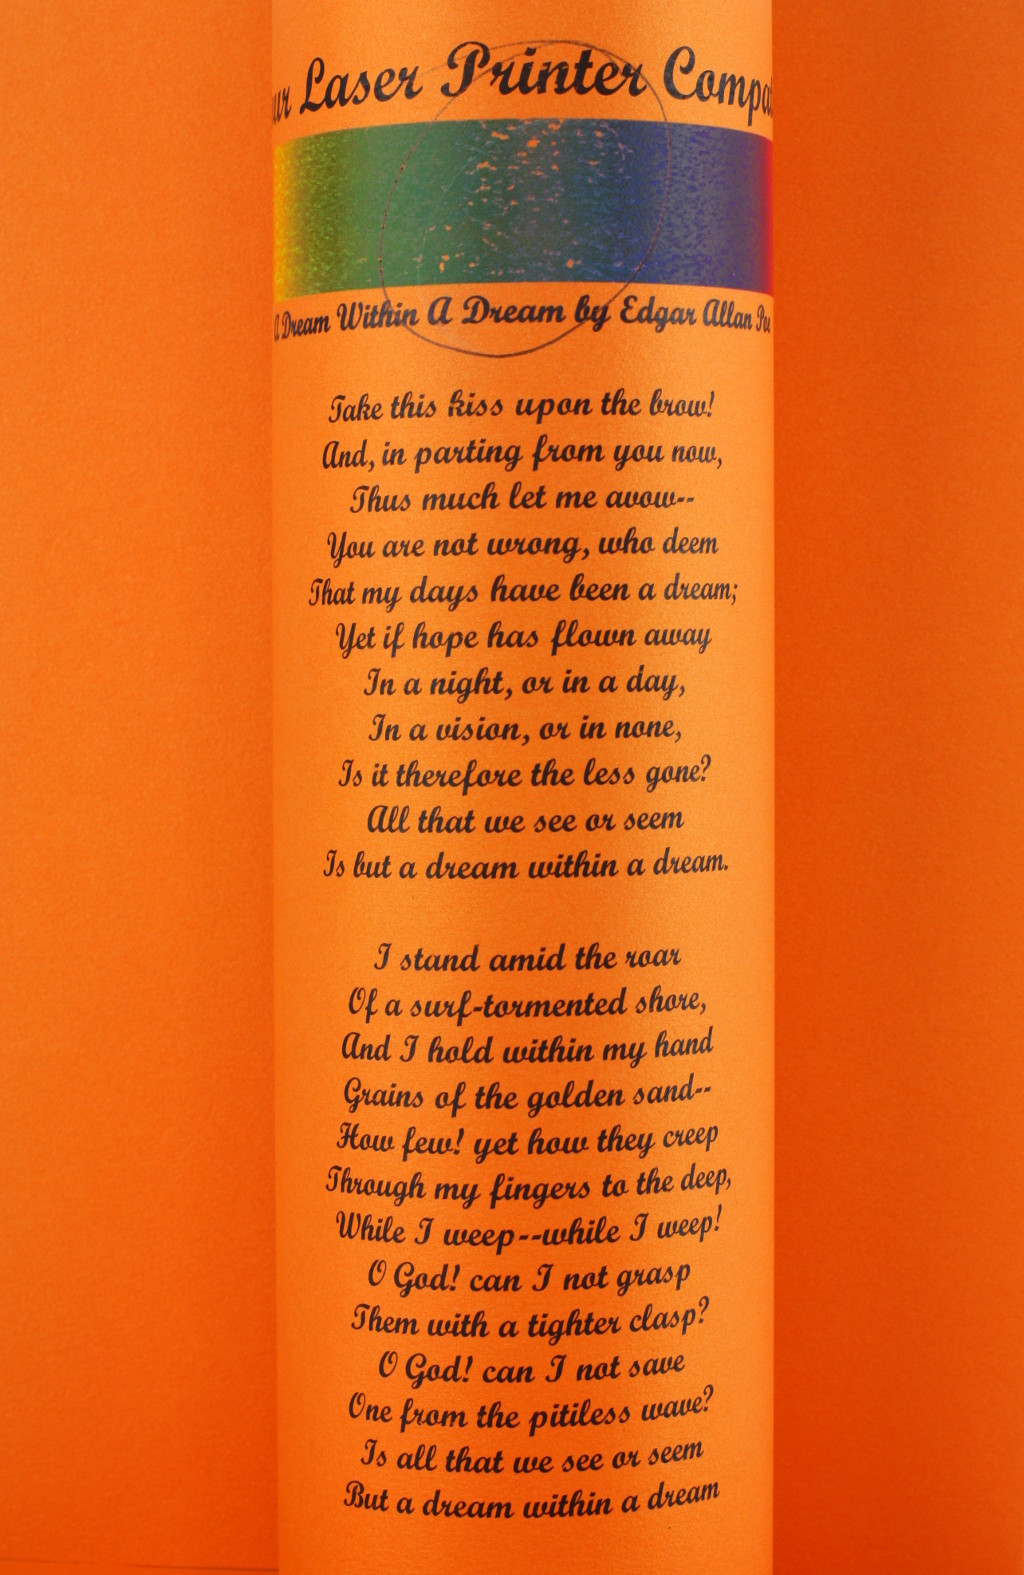 Laser Printer
A Dream Within A Dream by Edgar Allan Poe
Take this kiss upon the brow!
And, in parting from you now,
Thus much let me avow--
You are not wrong, who deem
That my days have been a dream;
Yet if hope has flown away
In a night, or in a day,
In a vision, or in none,
Is it therefore the less gone?
All that we see or seem
Is but a dream within a dream.
I stand amid the roar
Of a surf-tormented shore,
And I hold within my hand
Grains of the golden sand--
How few! yet how they creep
Through my fingers to the deep,
While I weep--while I weep!
O God! can I not grasp
Them with a tighter clasp?
O God! can I not save
One from the pitiless wave?
Is all that we see or seem
But a dream within a dream